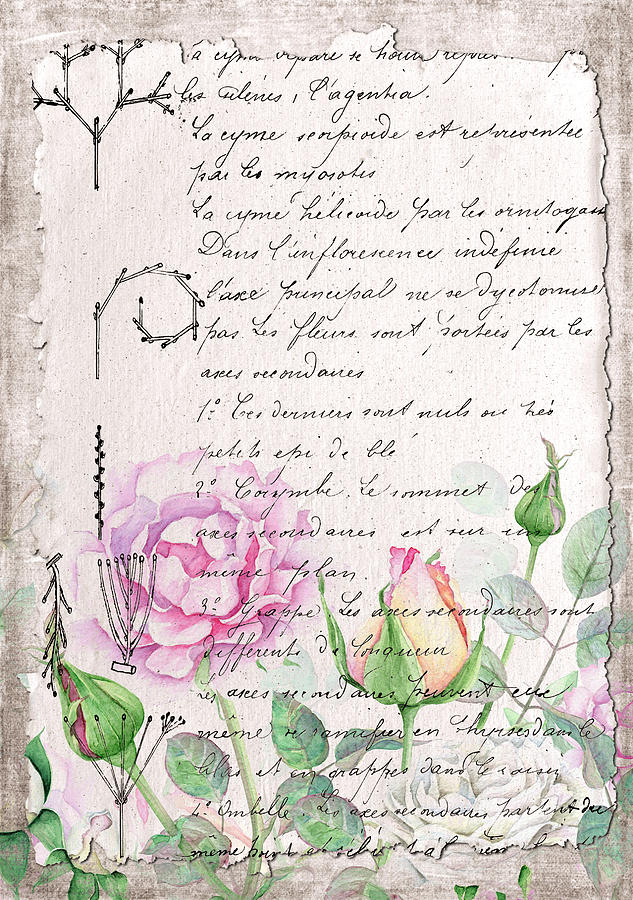 à cyme bipare se
les silènes, l'agentia.
La cyme scorpioïde est retrésentée
par les myosotis
La cyme hélicoïde par les ornitogas
Dans l'inflorescence indéfinie
l'axe principal ne se dycotomise
pas. Les fleurs sont portées par les
axes secondaires
1º Ces derniers sont nuls ou très
petits epi de blé
2º Corymbe. Le sommet des
axes secondaires est sur un
même plan.
3º Grappe Les axes secondaires sont
différents de longueur
Les axes secondaires peuvent eux
même se ramifier en thyrses dans le
lilas et en grappes dans le raisin
4º Ombelle. Les axes secondaires partent du
même point et